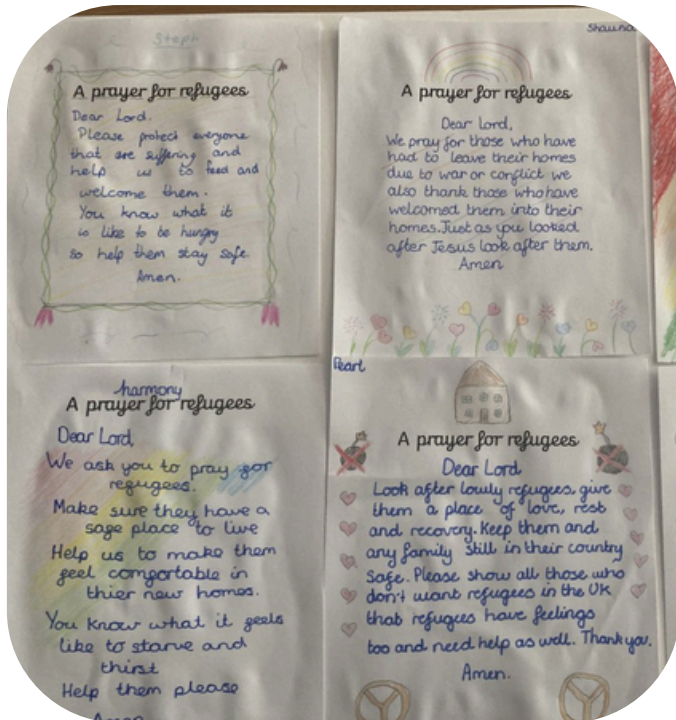 Steph
A prayer for refugees
Dear Lord.
Please protect everyone
that are suffering and
help us to feed and
welcome them.
You know what it
is like to be hungry
so help them stay safe.
Amen.
Shauna
A prayer for refugees
Dear Lord,
We pray for those who have
had to leave their homes
due to war or conflict we
also thank those who have
welcomed them into their
homes. Just as you looked
after Jesus look after them.
Amen
harmony
A prayer for refugees
Dear Lord,
We ask you to pray for
refugees.
Make sure they have a
safe place to live
Help us to make them
feel comfortable in
thier new homes.
You know what it feels
like to starve and
thirst
Help them please
Amen
Pearl
A prayer for refugees
Dear Lord
Look after lowly refugees, give
them a place of love, rest
and recovery. Keep them and
any family still in their country
safe. Please show all those who
don't want refugees in the UK
that refugees have feelings
too and need help as well. Thank you.
Amen.